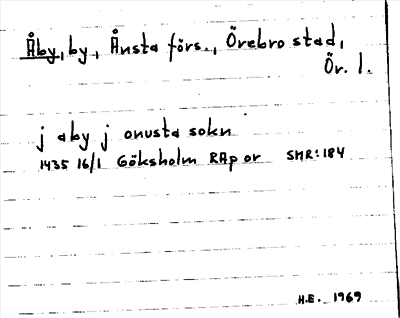 Åby, by, Ånsta förs., Örebro stad,
Ör. l.
j aby j onusta sokn
1435 16/1 Göksholm RAp or SMR:184
H.E. 1969